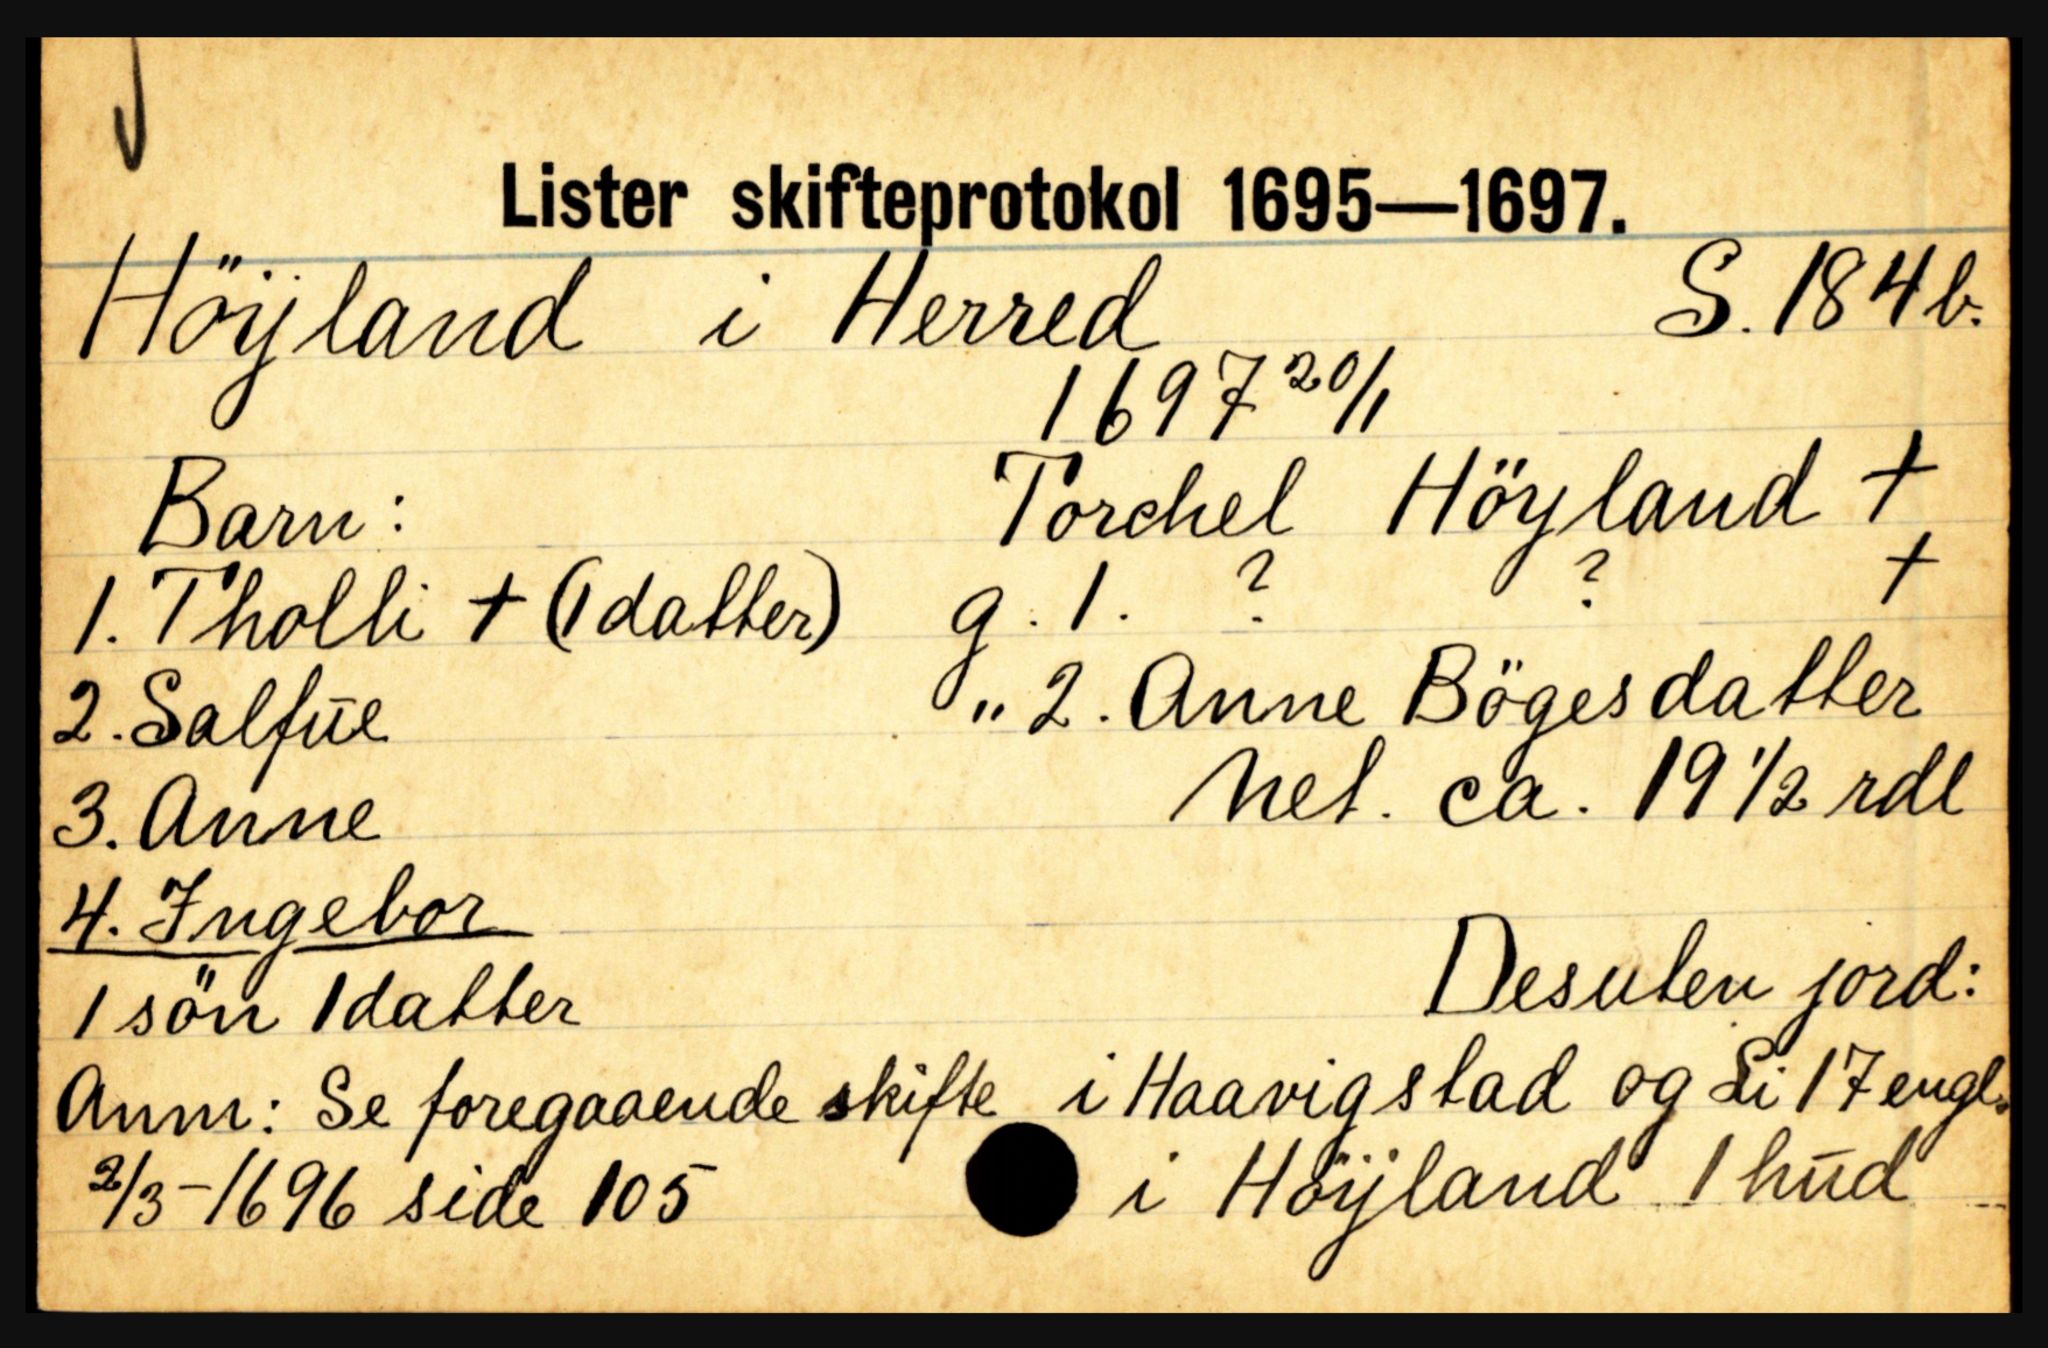 Lister skifteprotokol 1695—1697.
Höÿland i Herred S. 184 b.
1697 20/1
Barn: Torchel Höyland +
1. Tholli + (1 datter) g. 1. ? ? +
2. Salfūe " 2. Anne Bögesdatter
3. Anne Net. ca. 19 1/2 rdl
4. Ingebor
1 sön 1 datter Desuten jord:
Anm: Se foregaaende skifte i Haavigstad og Li 17 engl.
2/3-1696 side 105 i Höÿland 1 hūd